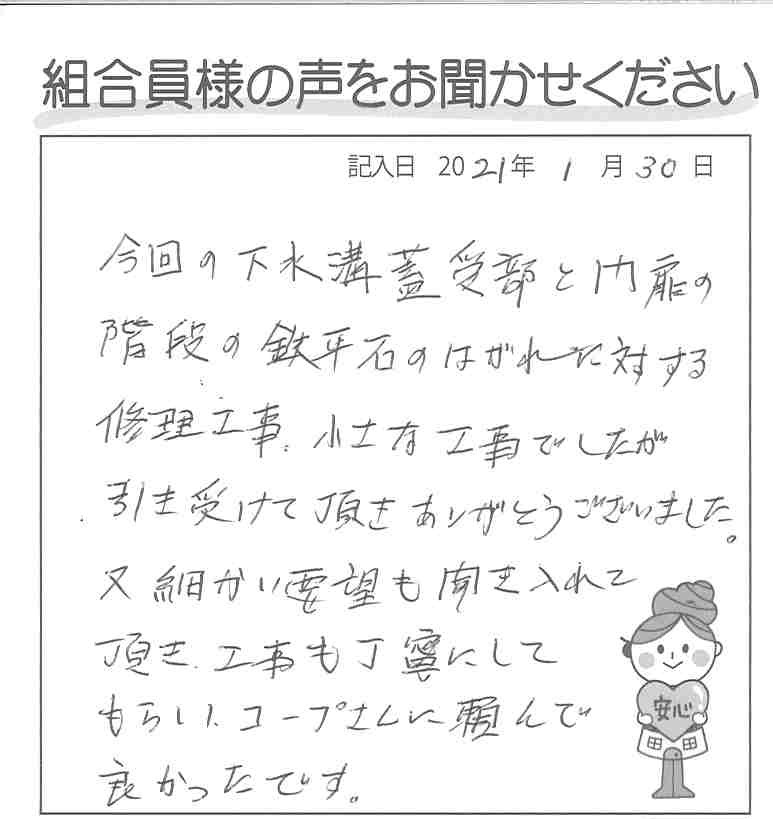 組合員様の声をお聞かせください
記入日 2021年 1月30日
今回の下水溝蓋受部と門扉の
階段の鉄平石のはがれに対する
修理工事、小さな工事でしたが
引き受けて頂きありがとうございました。
又細かい要望も聞き入れて
頂き、工事も丁寧にして
もらい、コープさんに頼んで
良かったです。
安心